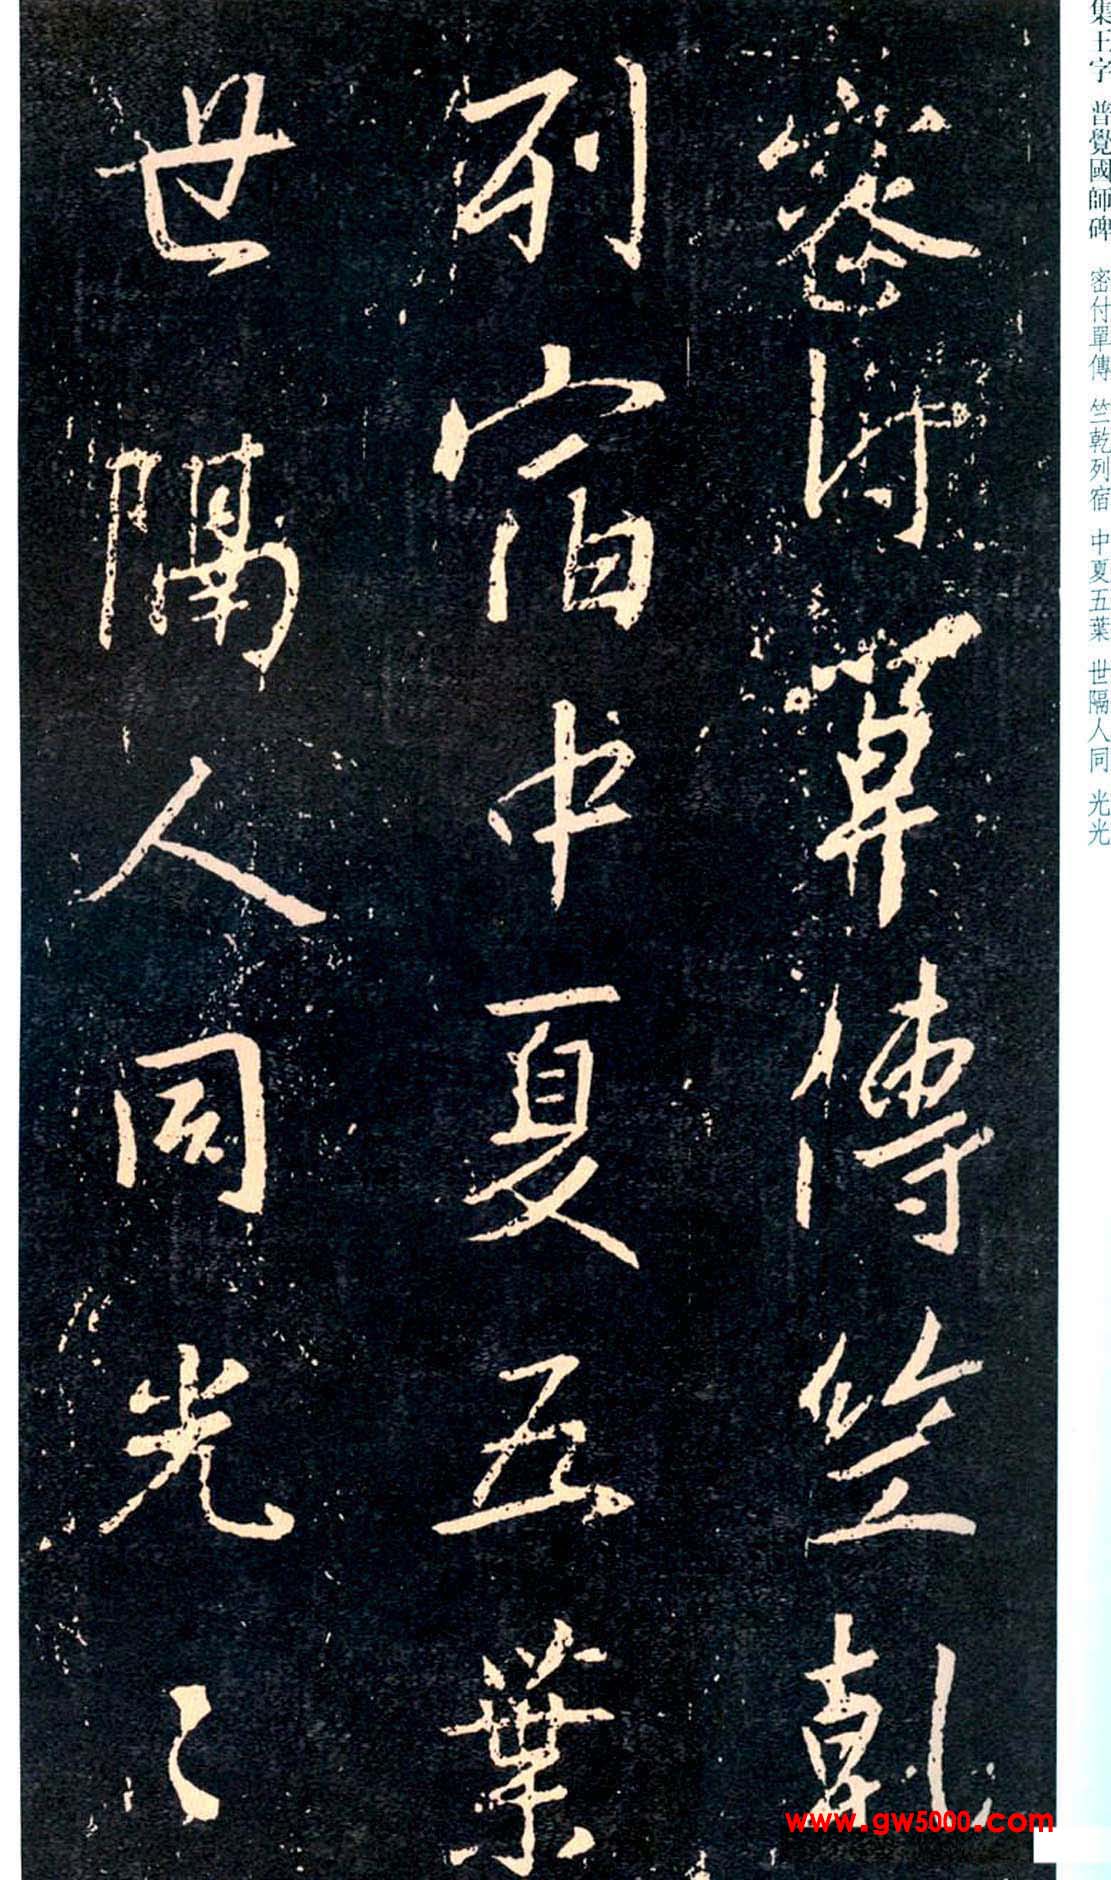 集王字 普覺國師碑 密付單傳 竺乾列宿 中夏五葉 世隔人同 光光
密付單傳竺乾
列宿中夏五葉
世隔人同光〻
www.gw5000.com